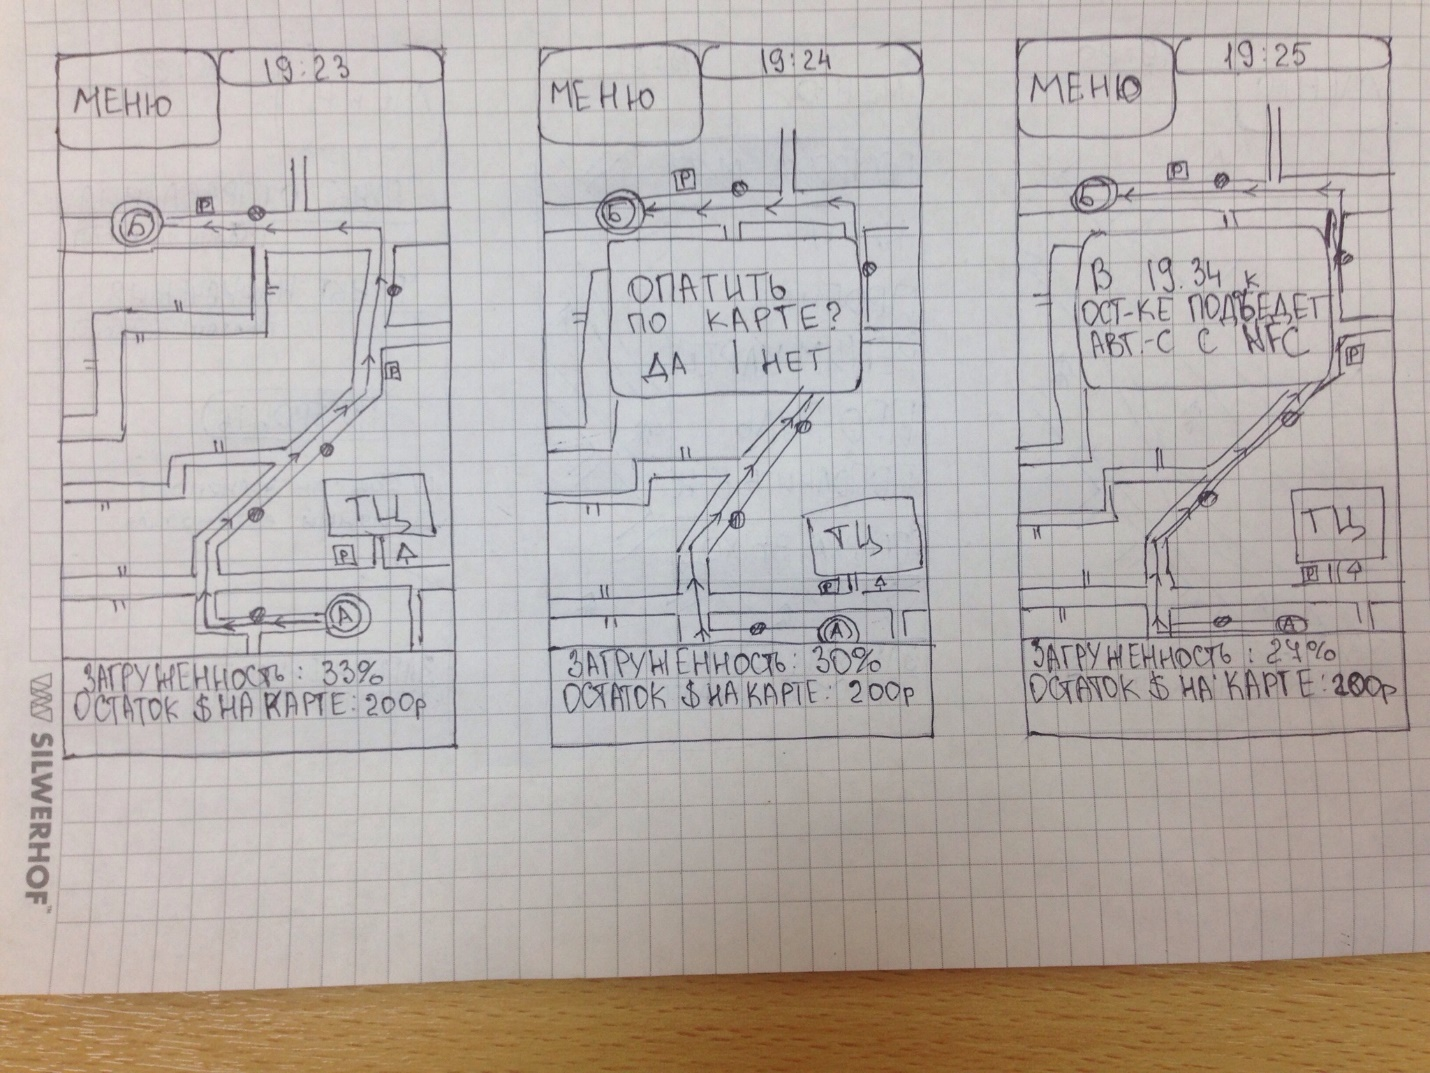 19:23
МЕНЮ
Р
Б
Р
ТЦ
Р
А
ЗАГРУЖЕННОСТЬ: 33%
ОСТАТОК $ НА КАРТЕ: 200р
19:24
МЕНЮ
Р
Б
ОПАТИТЬ
ПО КАРТЕ?
ДА | НЕТ
ТЦ
Р
А
ЗАГРУЖЕННОСТЬ: 30%
ОСТАТОК $ НА КАРТЕ: 200р
19:25
МЕНЮ
Р
Б
В 19.34 к
ОСТ-КЕ ПОДЪЕДЕТ
АВТ.-С С NFC
Р
ТЦ
Р
А
ЗАГРУЖЕННОСТЬ: 27%
ОСТАТОК $ НА КАРТЕ: 200р
SILWERHOF